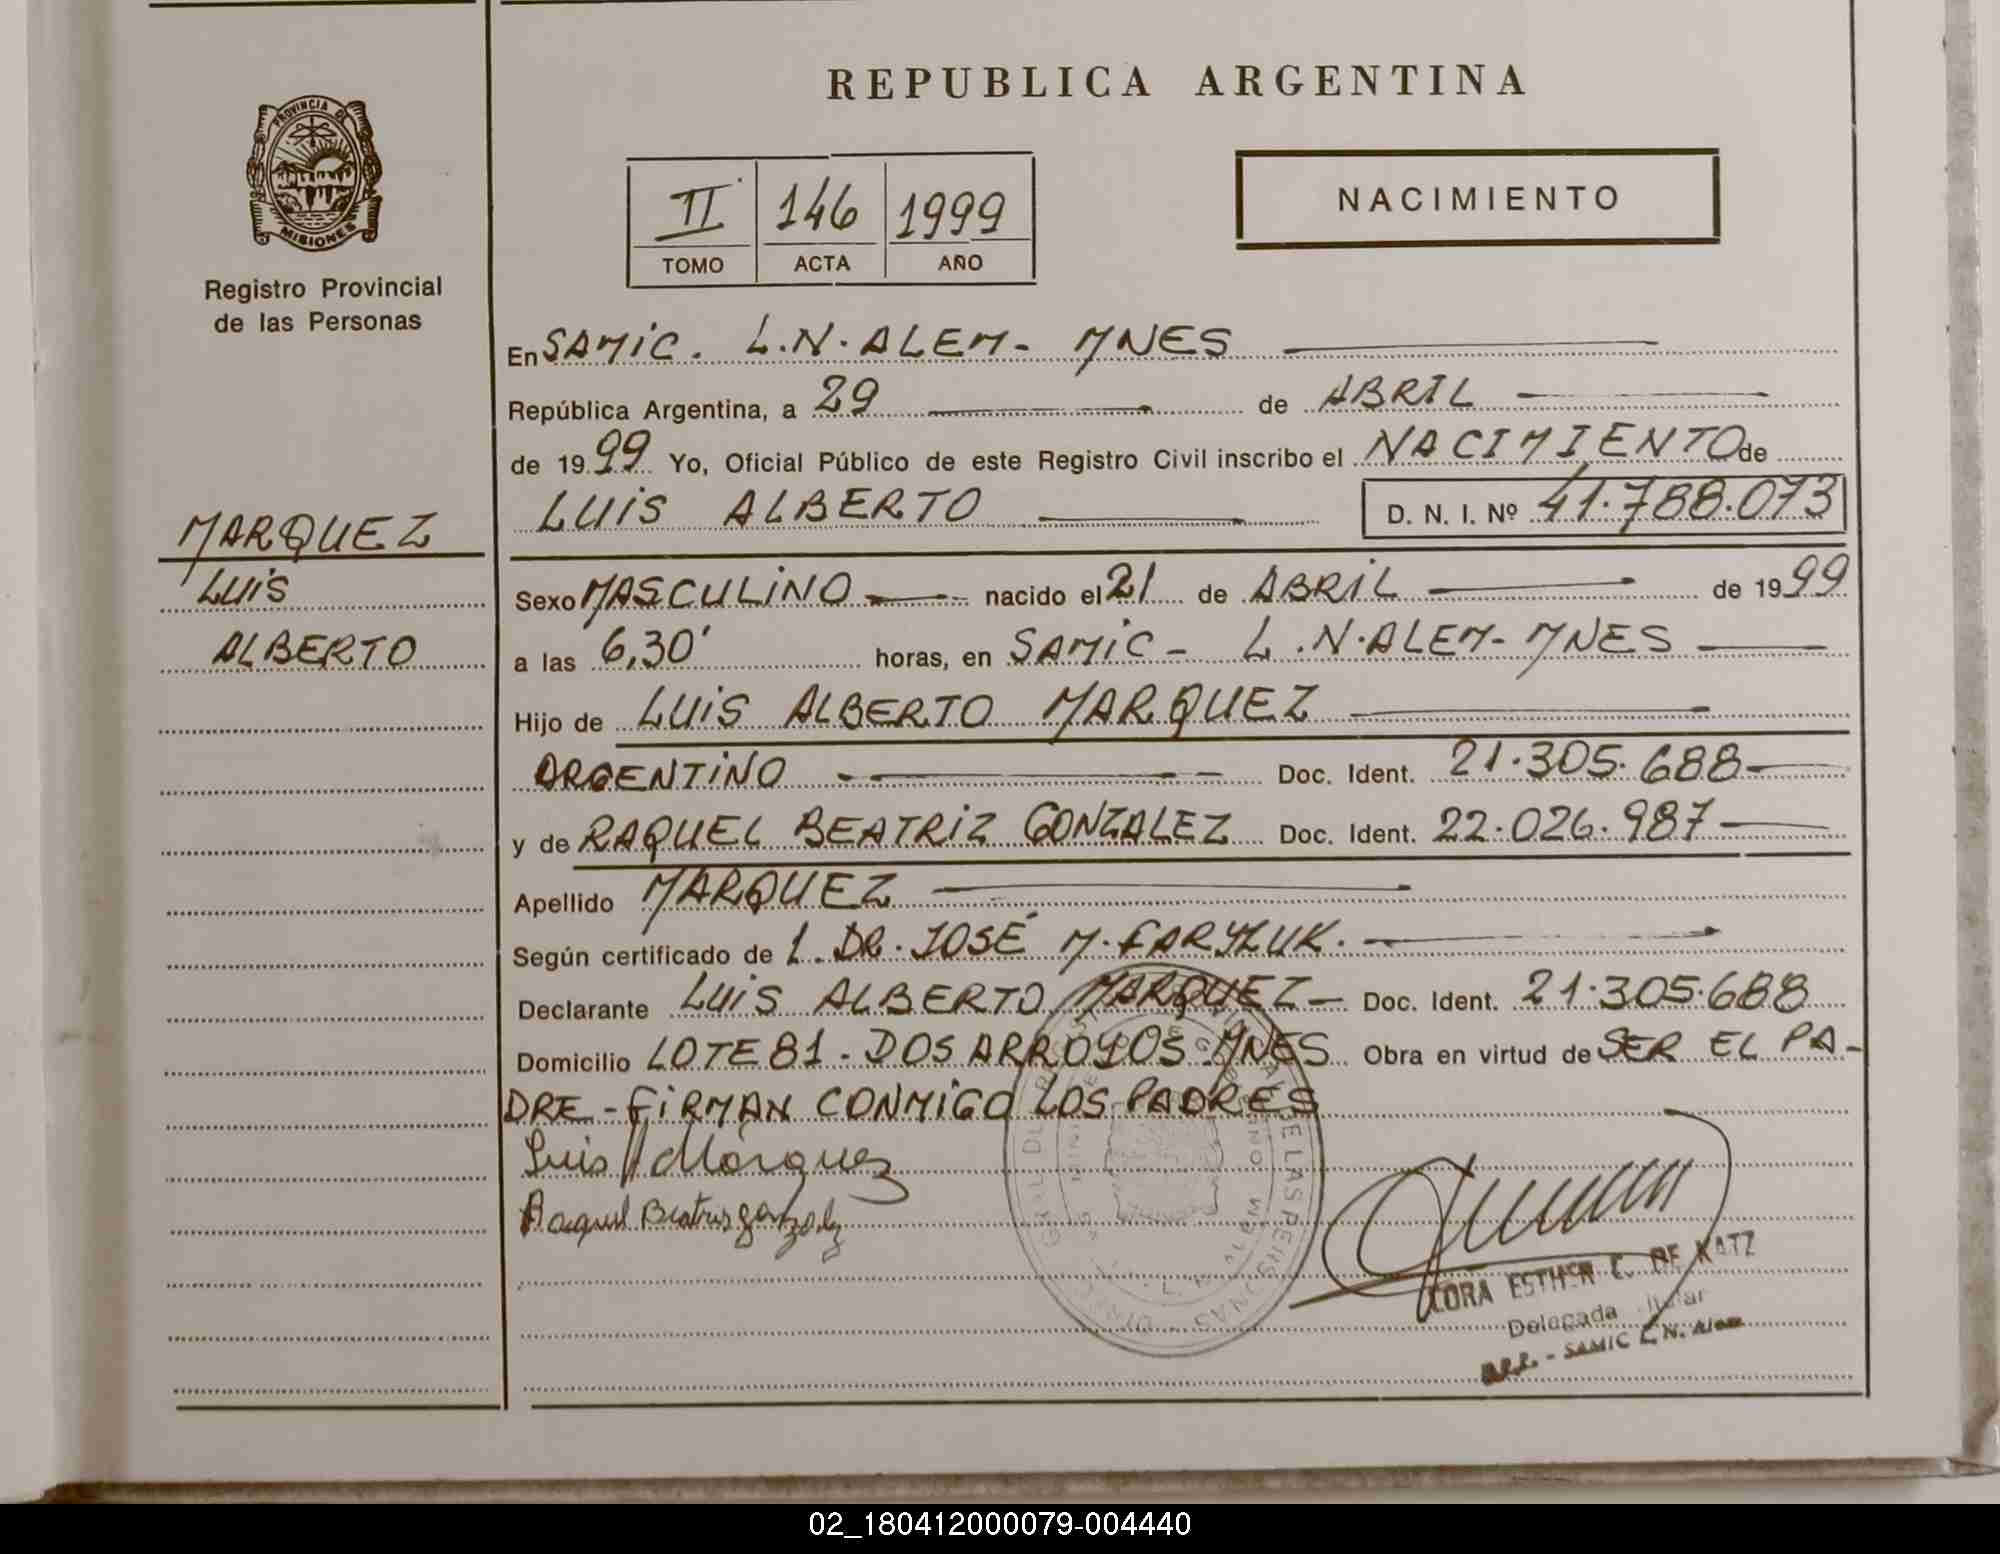 REPUBLICA ARGENTINA
PROVINCIA DE
MISIONES
Registro Provincial
de las Personas
II 146 1999
TOMO ACTA AÑO
NACIMIENTO
MARQUEZ
LUIS
ALBERTO
En SAMIC. L.N. ALEM- MNES
República Argentina, a 29 de ABRIL
de 1999 Yo, Oficial Público de este Registro Civil inscribo el NACIMIENTO de
LUIS ALBERTO D. N. I. Nº 41.788.073
Sexo MASCULINO nacido el 21 de ABRIL de 1999
a las 6,30' horas, en SAMIC - L.N. ALEM- MNES
Hijo de LUIS ALBERTO MARQUEZ
ARGENTINO Doc. Ident. 21.305.688
y de RAQUEL BEATRIZ GONZALEZ Doc. Ident. 22.026.987
Apellido MARQUEZ
Según certificado de l. DR. JOSÉ M. FARYLUK.
Declarante LUIS ALBERTO MARQUEZ Doc. Ident. 21.305.688
Domicilio LOTE 81 - DOS ARROYOS MNES Obra en virtud de SER EL PA-
DRE - FIRMAN CONMIGO LOS PADRES
Luis A Márquez
Raquel Beatriz gonzalez
DE LAS PERSONAS
ESTHER C. DE KATZ
Delegada Titular
R.P.P. - SAMIC L. N. Alem
02_180412000079-004440